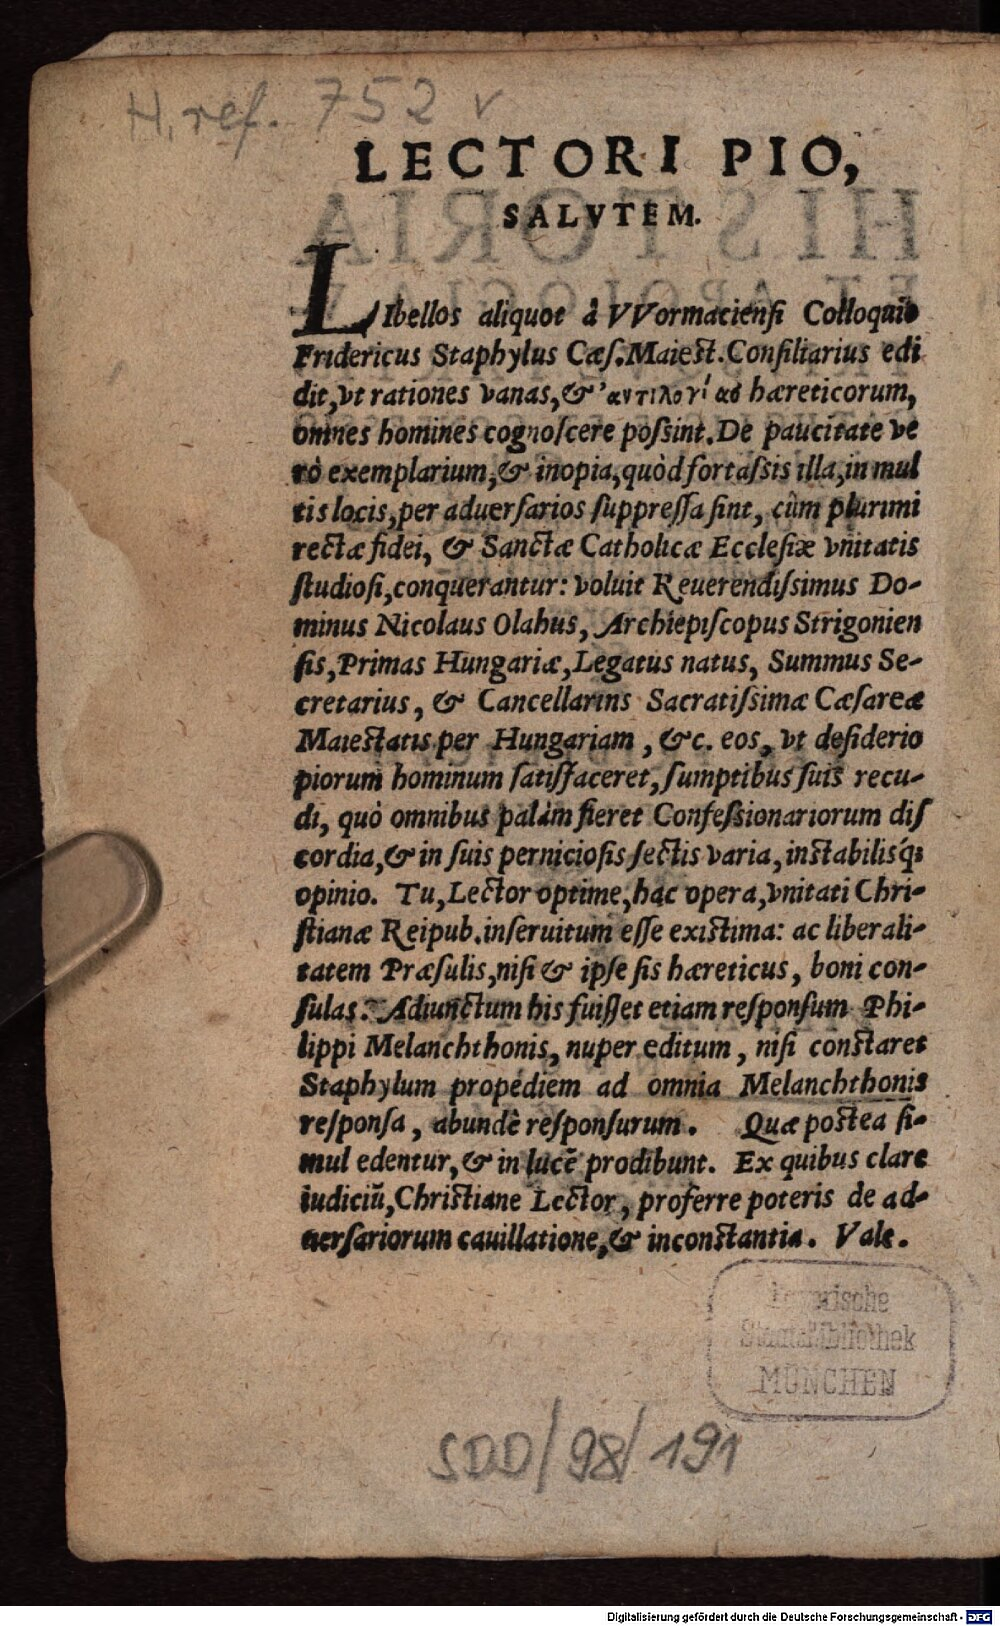 H. ref. 752 v
LECTORI PIO,
SALVTEM.
LIbellos aliquot à VVormaciensi Colloquio
Fridericus Staphylus Cæs. Maiest. Consiliarius edi
dit, vt rationes vanas, & ἀντιλογίας hæreticorum,
omnes homines cognoscere possint. De paucitate ve
rò exemplarium, & inopia, quòd fortassis illa, in mul
tis locis, per aduersarios suppressa sint, cùm plurimi
rectæ fidei, & Sanctæ Catholicæ Ecclesiæ vnitatis
studiosi, conquerantur: voluit Reuerendissimus Do-
minus Nicolaus Olahus, Archiepiscopus Strigonien
sis, Primas Hungariæ, Legatus natus, Summus Se-
cretarius, & Cancellarius Sacratissimæ Cæsareæ
Maiestatis per Hungariam, &c. eos, vt desiderio
piorum hominum satisfaceret, sumptibus suis recu-
di, quò omnibus palàm fieret Confessionariorum dis
cordia, & in suis perniciosis sectis varia, instabilisq́;
opinio. Tu, Lector optime, hac opera, vnitati Chri-
stianæ Reipub. inseruitum esse existima: ac liberali-
tatem Præsulis, nisi & ipse sis hæreticus, boni con-
sulas. Adiunctum his fuisset etiam responsum Phi-
lippi Melanchthonis, nuper editum, nisi constaret
Staphylum propediem ad omnia Melanchthonis
responsa, abundè responsurum. Quæ postea si-
mul edentur, & in lucē prodibunt. Ex quibus clare
iudiciū, Christiane Lector, proferre poteris de ad-
uersariorum cauillatione, & inconstantia. Vale.
Bayerische
Staatsbibliothek
MÜNCHEN
SDD/98/191
Digitalisierung gefördert durch die Deutsche Forschungsgemeinschaft - DFG